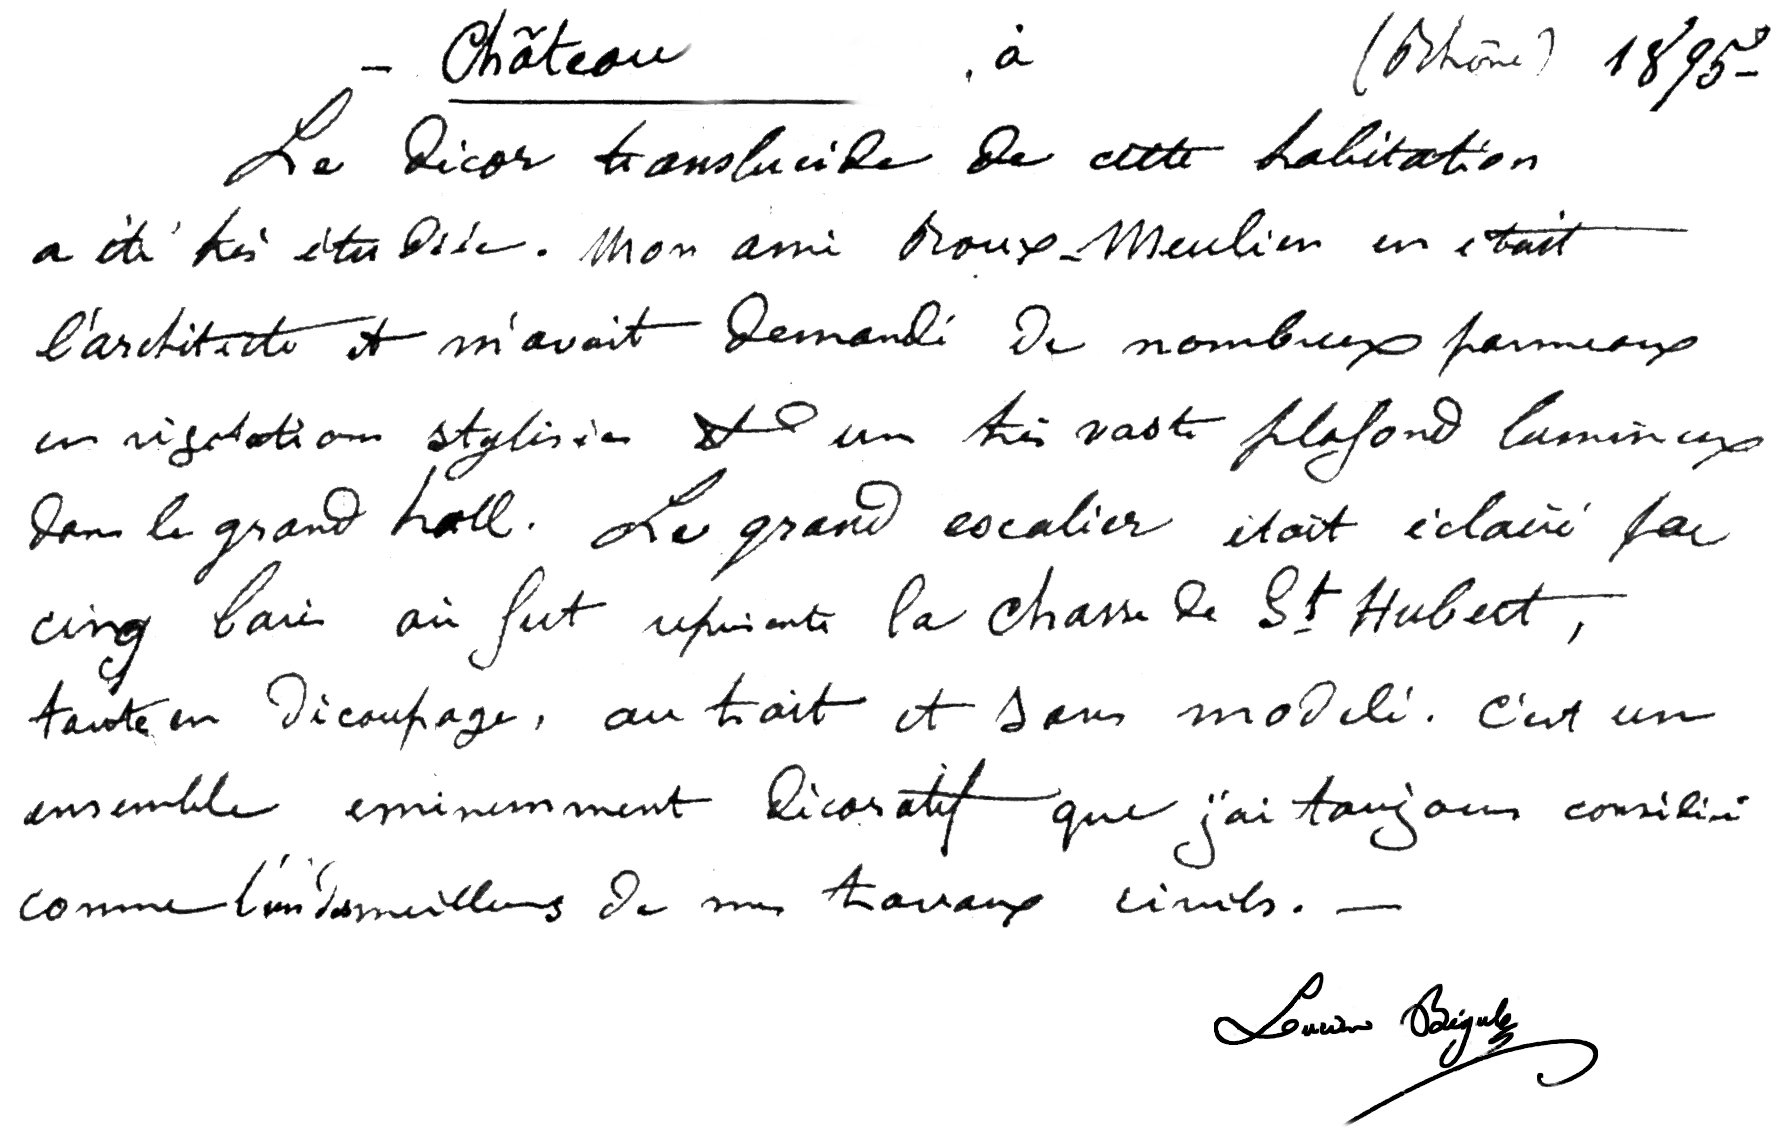 - Château , à (Rhône) 1895-
Le décor translucide de cette habitation
a été très étudiée. Mon ami Roux-Meulien en était
l'architecte et m'avait demandé de nombreux panneaux
en végétations stylisées et un très vaste plafond lumineux
dans le grand hall. Le grand escalier était éclairé par
cinq baies où fut représenté la chasse de St Hubert,
toute en découpage, au trait et sans modelé. C'est un
ensemble eminemment décoratif que j'ai toujours considéré
comme l'un des meilleurs de mes travaux civils. —
Lucien Bégule